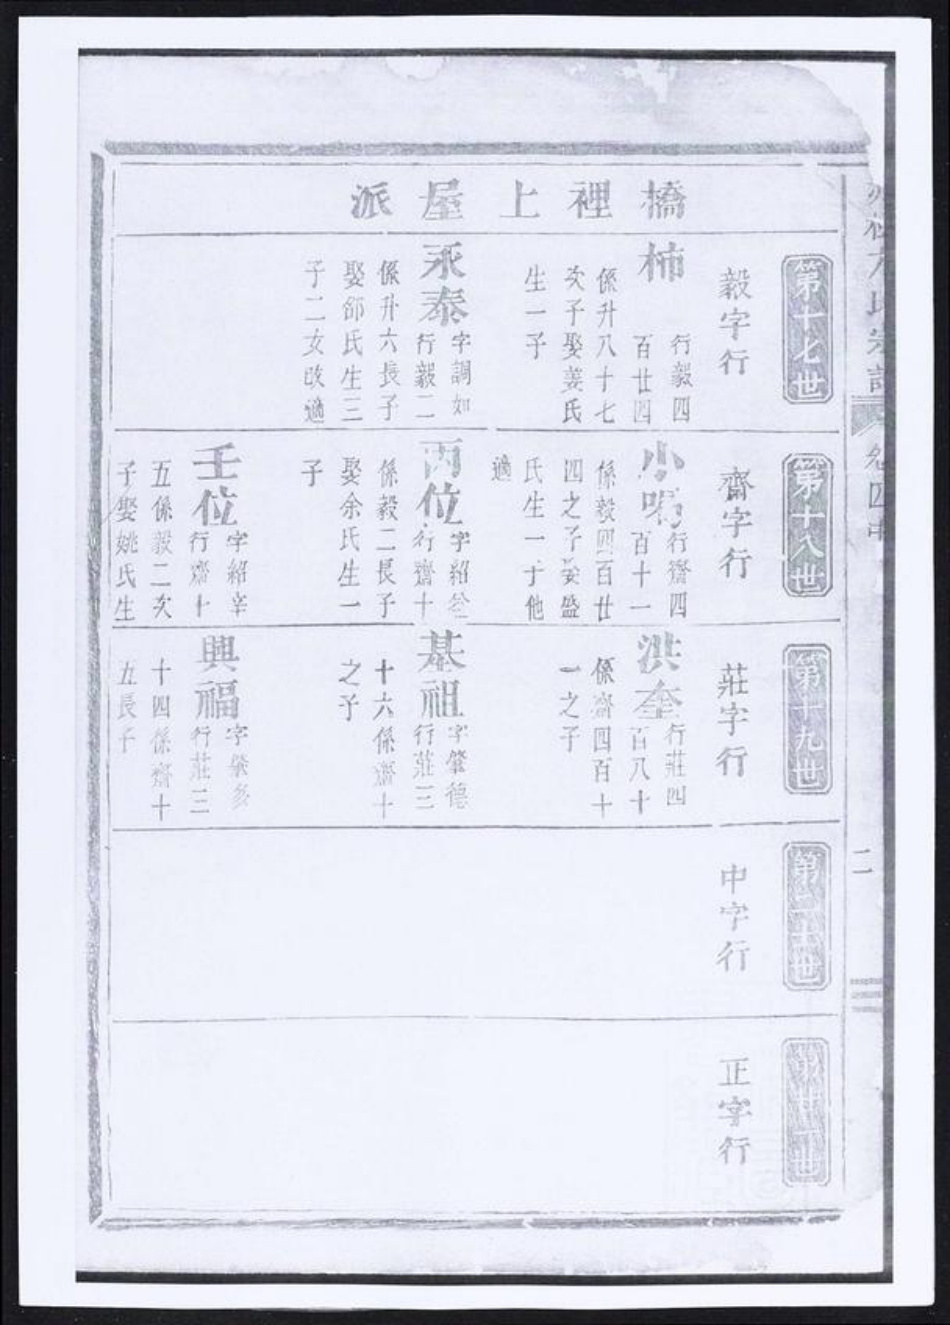 橋裡上屋派
第十七世
毅字行
柿
行毅四
百廿四
係升八十七
次子娶姜氏
生一子
永泰
字調如
行毅二
係升六長子
娶邵氏生三
子二女改適
第十八世
齋字行
小
行齋四
百十一
係毅四百廿
四之子娶盛
氏生一子他
適
丙位
字紹
行齋十
係毅二長子
娶余氏生一
子
壬位
字紹辛
行齋十
五係毅二次
子娶姚氏生
第十九世
莊字行
洪奎
行莊四
百八十
係齋四百十
一之子
基祖
字肇德
行莊三
十六係齋十
之子
興福
字肇
行莊三
十四係齋十
五長子
第二十世
中字行
第廿一世
正字行
氏宗譜
卷四中
二